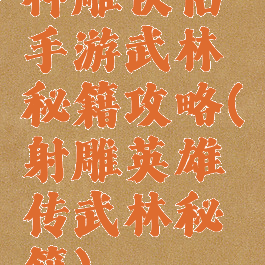 神雕侠侣
手游武林
秘籍攻略(
射雕英雄
传武林秘
籍)